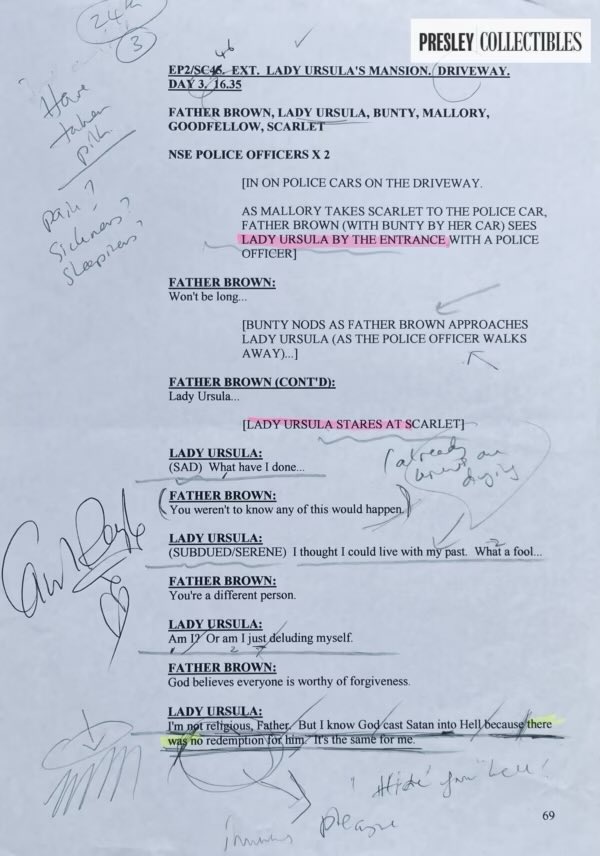 24th
3
PRESLEY COLLECTIBLES
46
EP2/SC45. EXT. LADY URSULA'S MANSION. DRIVEWAY.
DAY 3. 16.35
Have
taken
pill
pain?
sickness?
sleepiness?
FATHER BROWN, LADY URSULA, BUNTY, MALLORY,
GOODFELLOW, SCARLET
NSE POLICE OFFICERS X 2
[IN ON POLICE CARS ON THE DRIVEWAY.
AS MALLORY TAKES SCARLET TO THE POLICE CAR,
FATHER BROWN (WITH BUNTY BY HER CAR) SEES
LADY URSULA BY THE ENTRANCE WITH A POLICE
OFFICER]
FATHER BROWN:
Won't be long...
[BUNTY NODS AS FATHER BROWN APPROACHES
LADY URSULA (AS THE POLICE OFFICER WALKS
AWAY)...]
FATHER BROWN (CONT'D):
Lady Ursula...
[LADY URSULA STARES AT SCARLET]
LADY URSULA:
(SAD) What have I done...
(already
dying
FATHER BROWN:
You weren't to know any of this would happen.
LADY URSULA:
(SUBDUED/SERENE) I thought I could live with my past. What a fool...
FATHER BROWN:
You're a different person.
LADY URSULA:
Am I? Or am I just deluding myself.
FATHER BROWN:
God believes everyone is worthy of forgiveness.
LADY URSULA:
I'm not religious, Father. But I know God cast Satan into Hell because there
was no redemption for him. It's the same for me.
please
69